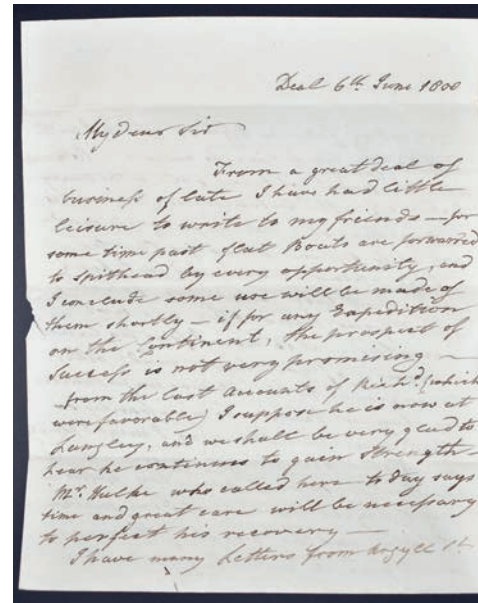 Deal 6th June 1800
My Dear Sir
From a great deal of
business of late I have had little
leisure to write to my friends — for
some time past flat Boats are forwarded
to Spithead by every opportunity, and
I conclude some use will be made of
them shortly — if for any Expedition
on the Continent, the prospect of
Success is not very promising —
from the last accounts of Richd. (which
were favorable) I suppose he is now at
Langley, and we shall be very glad to
hear he continues to gain Strength —
Mr. Hulke who called here to day says
time and great care will be necessary
to perfect his recovery —
I have many Letters from Argyll St